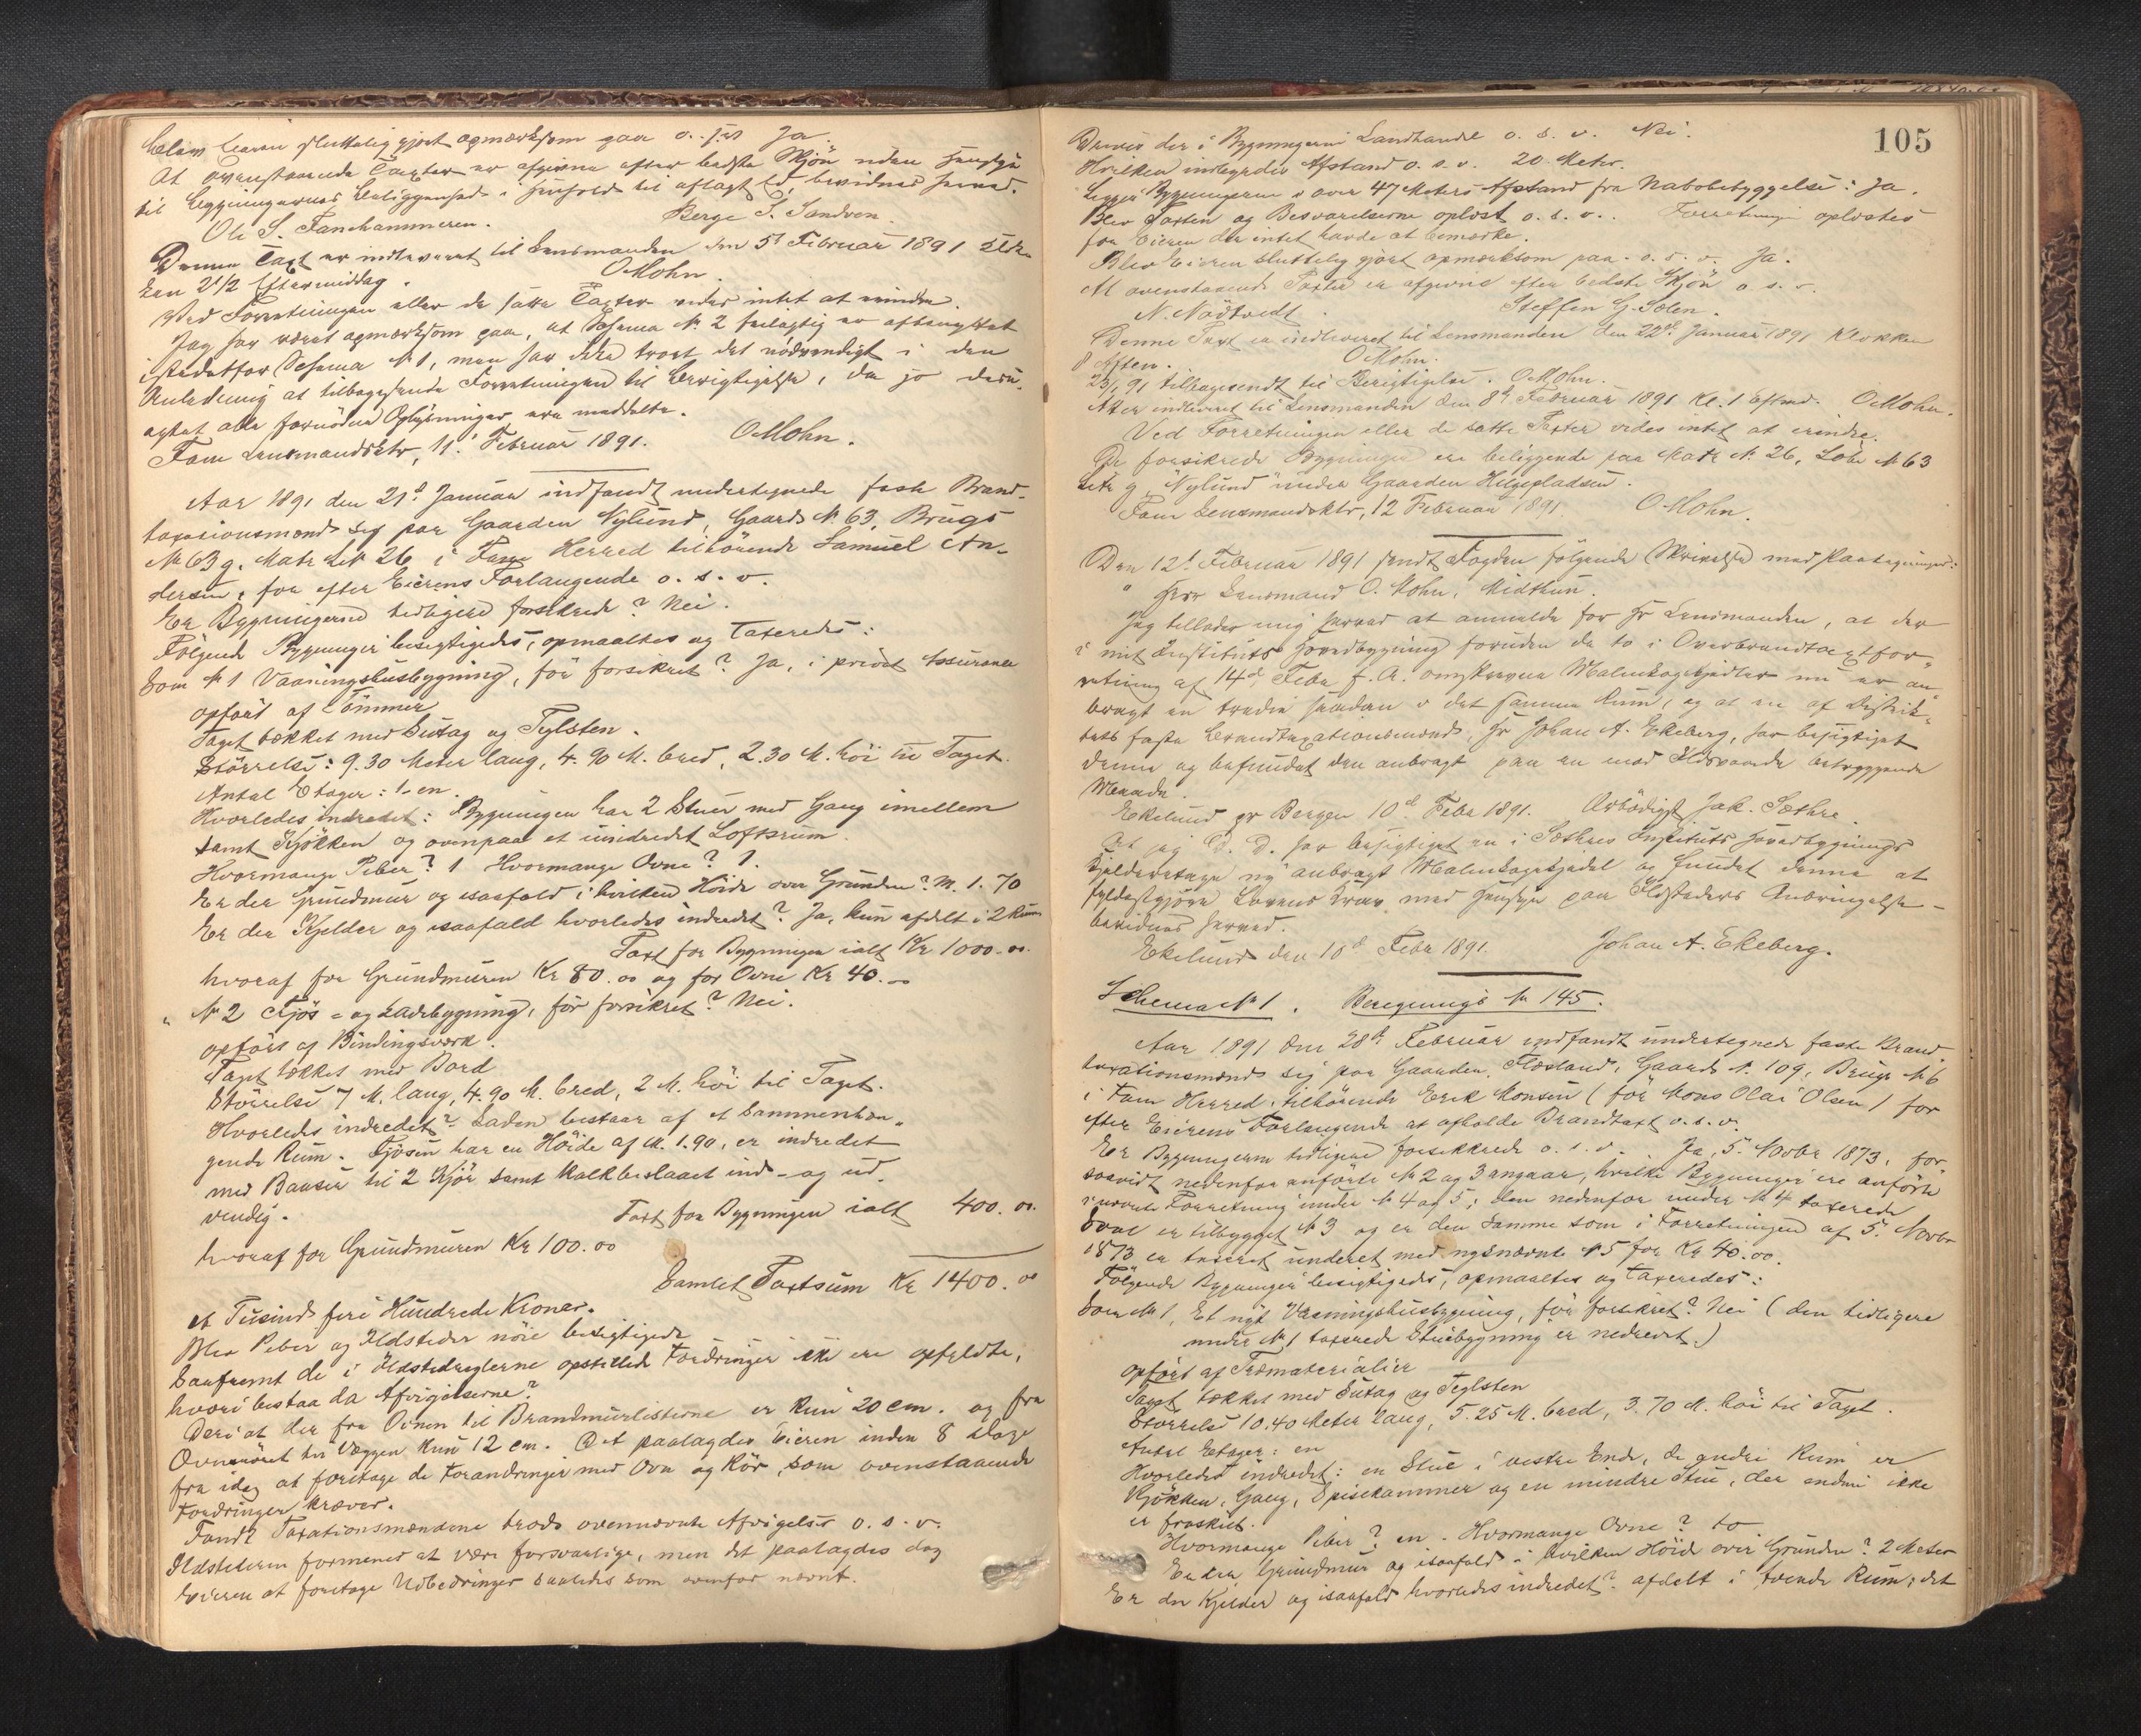 Blev Eieren sluttelig gjort opmærksom paa o. s. v. Ja.
At ovenstaaende Taxter er afgivne efter bedste Skjön uden Hensyn
til Bygningernes Beliggenhed i Henhold til aflagt Ed, bevidnes herved.
Ole S. Fanehammeren. Berge S. Sandven.
Denne Taxt er indleveret til Lensmanden den 5t Februar 1891 Klok-
ken 2 1/2 Eftermiddag. OMohn.
Ved Forretningen eller de satte Taxter vides intet at erindre.
Jeg har været opmærksom paa, at Schema No. 2 feilagtig er afbenyttet
istedetfor Schema No 1, men har ikke troet det nödvendigt i den
Anledning at tilbagesende Forretningen til Berigtigelse, da jo desu-
agtet alle fornödne Oplysninger ere meddelte.
Fane Lensmandsktr, 11. Februar 1891. OMohn.
Aar 1891 den 21d Januar indfandt undertegnede faste Brand-
taxasionsmænd sig paa Gaarden Nylund, Gaards No. 63, Brugs
No 63 g. Matr No 26 i Fane Herred tilhörende Samuel An-
dersen, for efter Eierens Forlangende o. s. v.
Er Bygningerne tidligere forsikrede? Nei.
Fölgende Bygninger besigtigedes, opmaaltes og taxeredes:
Som No 1 Vaaningshusbygning, för forsikret? Ja, i privat Assurance
opfört af Tömmer
Taget tækket med Sutag og Teglsten.
Störrelse: 9.30 Meter lang, 4.90 M. bred, 2.30 M. höi til Taget.
Antal Etager: 1- en.
Hvorledes indredet: Bygningen har 2 Stuer med Gang imellem
samt Kjökken og ovenpaa et uindredet Loftsrum.
Hvormange Piber? 1 Hvormange Ovne? 1.
Er der Grundmur og isaafald i hvilken Höide over Grunden? M. 1.70
Er der Kjelder og isaafald hvorledes indredet? Ja, kun afdelt i 2 Rum
Taxt for Bygningen ialt Kr 1000.00.
hvoraf for Grundmuren Kr 80.00 og for Ovne Kr 40.00
" No 2 Fjös- og Ladebygning, för forsikret? Nei.
opfört af Bindingsværk.
Taget tækket med Bord
Störrelse 7 M. lang, 4.90 M. bred, 2 M. höi til Taget.
Hvorledes indredet? Laden bestaar af et sammenhæn-
gende Rum. Fjösen har en Höide af M. 1.90, er indredet
med Baaser til 2 Kjör samt Kalkbeslaaet ind- og ud-
vendig. Taxt for Bygningen ialt 400.00.
hvoraf for Grundmuren Kr 100.00
Samlet Taxtsum Kr 1400.00
et Tusind fire Hundrede Kroner.
Blev Piber og Ildsteder nöie besigtigede
Saafremt de i Ildstedreglerne opstillede Fordringer ikke ere opfyldte,
hvori bestaa da Afvigelserne?
Deri at der fra Ovnen til Brandmurlisterne er kun 20 cm. og fra
Ovnsröret til Væggen kun 12 cm. Det paalagdes Eieren inden 8 Dage
fra idag at foretage de Forandringer med Ovn og Rör, som ovenstaaende
Fordringer kræver.
Fandt Taxationsmændene trods ovennævnte Afvigelser o. s. v.
Ildstederne formenes at være forsvarlige, men det paalagdes dog
Eieren at foretage Udbedringer saaledes som ovenfor nævnt.
105
Drives der i Bygningerne Landhandel o. s. v. Nei.
Hvilken indbyrdes Afstand o. s. v. 20 Meter.
Ligger Bygningerne i over 47 Meters Afstand fra Nabobebyggelse: Ja.
Blev Taxten og Besvarelserne oplæst o. s. v.. Forretningen oplæstes
for Eieren der intet havde at bemærke.
Blev Eieren sluttelig gjort opmærksom paa. o. s. v. Ja.
At ovenstaaende Taxter er afgivne efter bedste Skjön o. s. v.
N. Nödtvedt. Steffen G. Solen.
Denne Taxt er indleveret til Lensmanden den 22d Januar 1891 Klokken
8 Aften. OMohn.
23/1 91 tilbagesendt til Berigtigelse. OMohn.
Atter indleveret til Lensmanden den 8d Februar 1891 Kl. 1 Eftmd. OMohn.
Ved Forretningen eller de satte Taxter vides intet at erindre.
De forsikrede Bygninger ere beliggende paa Matr No. 26, Löbe No 63
Litr g "Nylund" under Gaarden Helgepladsen.
Fane Lensmandsktr, 12 Februar 1891. OMohn.
Den 12t Februar 1891 sendt Fogden fölgende Skrivelse med Paategninger:
" Herr Lensmand O. Mohn, Midthun.
Jeg tillader mig herved at anmelde for Hr Lensmanden, at der
i mit Instituts Hovedbygning foruden de to i Overbrandtaxtfor-
retning af 14d Febr f. A. omskrevne Malmkogekjedler nu er an-
bragt en tredie saadan i det samme Rum, og at en af Distrik-
tets faste Brandtaxationsmænd, Hr Johan A. Ekeberg, har besigtiget
denne og befundet den anbragt paa en mod Ildsvaade betryggende
Maade.
Ekelund pr Bergen 10d Febr 1891. Ærbödigst Jak. Sæthre.
At jeg D. D. har besigtiget en i Sæthres Instituts Hovedbygnings
Kjelderetage ny anbragt Malmkogekjedel og fundet denne at
fyldestgjöre Lovens Krav med Hensyn paa Ildsteders Anbringelse -
bevidnes herved.
Ekelund den 10d Febr 1891. Johan A. Ekeberg.
Schema No 1. Beregnings No 145.
Aar 1891 den 28d Februar indfandt undertegnede faste Brand-
taxationsmænd sig paa Gaarden Flæsland, Gaards No. 109, Brugs No 6
i Fane Herred, tilhörende Erik Monsen (för Mons Olai Olsen) for
efter Eierens Forlangende at afholde Brandtaxt o. s. v.
Er Bygningerne tidligere forsikkrede o. s. v. Ja, 5. Novbr 1873, for-
saavidt nedenfor anförte No 2 og 3 angaar, hvilke Bygninger ere anförte
i nævnte Forretning under No 4 og 5; den nedenfor under No 4 taxerede
Sval er tilbygget No 3 og er den samme som i Forretningen af 5. Novbr
1873 er taxeret underet med nysnævnte No 5 for Kr 40.00.
Fölgende Bygninger besigtigedes, opmaaltes og taxeredes:
Som No 1, Et nyt Vaaningshusbygning, för forsikret? Nei (den tidligere
under No 1 taxerede Stuebygning er nedrevet.)
opfört af Træmaterialier
Taget tækket med Sutag og Teglsten
Störrelse 10.40 Meter lang, 5.25 M. bred, 3.70 M. höi til Taget.
Antal Etager: en
Hvorledes indredet: en Stue i vestre Ende, de andre Rum er
Kjökken, Gang, Spisekammer og en mindre Stue, der endnu ikke
er fraskilt.
Hvormange Piber? en. Hvormange Ovne? to
Er der Grundmur og isaafald i hvilken Höide over Grunden? 2 Meter
Er der Kjelder og isaafald hvorledes indredet? afdelt i tvende Rum; det